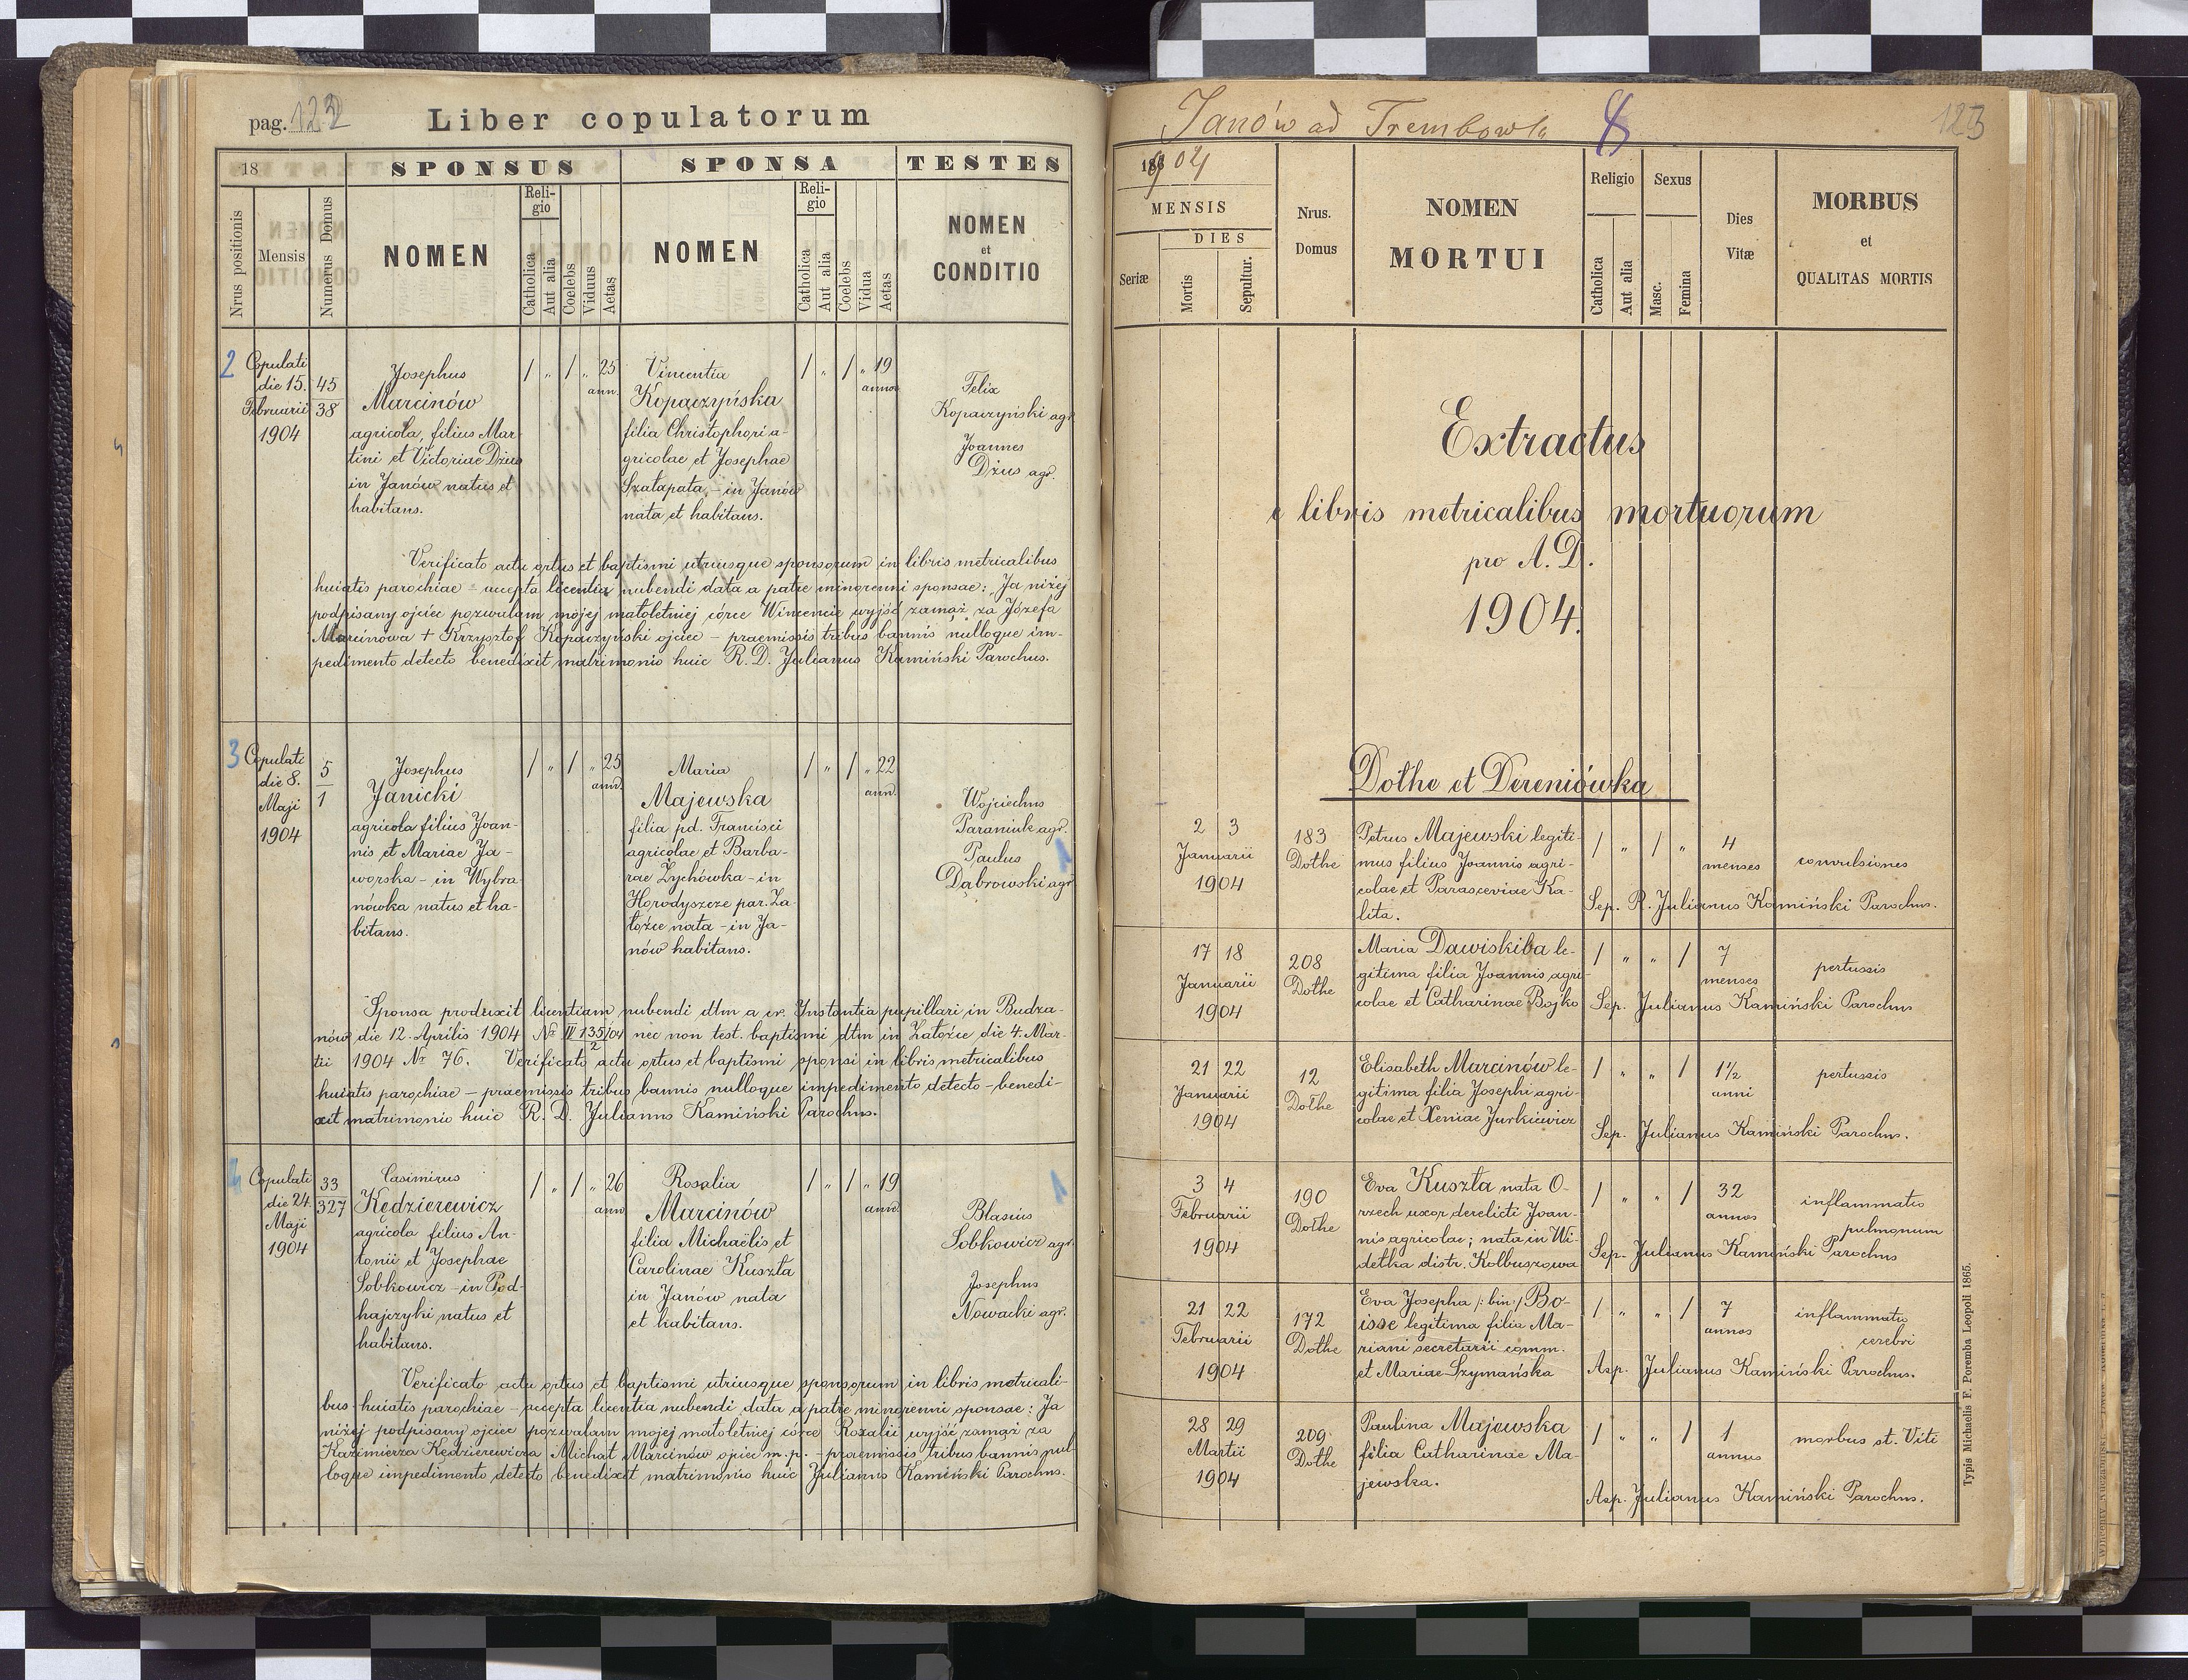 pag. 122 Liber copulatorum
18 SPONSUS SPONSA TESTES
Nrus positionis
Mensis
Numerus Domus
NOMEN
Religio
Catholica
Aut alia
Coelebs
Viduus
Aetas
NOMEN
Religio
Catholica
Aut alia
Coelebs
Vidua
Aetas
NOMEN
et
CONDITIO
2
Copulati
die 15.
Februarii
1904
45
38
Josephus
Marcinów
agricola, filius Mar-
tini et Victoriae Dżus
in Janów natus et
habitans.
/ „ / „ 25
ann.
Vincentia
Kopaczyńska
filia Christophori a-
gricolae et Josephae
Szatapata, – in Janów
nata et habitans.
/ „ / „ 19
annos
Felix
Kopaczyński agr.
Joannes
Dżus agr.
Verificato actu ortus et baptismi utriusque sponsorum in libris metricalibus
huiatis parochiae – accepta licentia nubendi data a patre minorenni sponsae: „Ja niżej
podpisany ojciec pozwalam mojej małoletniej córce Wincencie wyjść zamąż za Józefa
Marcinowa + Krzysztof Kopaczyński ojciec – praemissis tribus bannis nulloque im-
pedimento detecto benedixit matrimonio huic R. D. Julianus Kamiński Parochus.
3
Copulati
die 8.
Maji
1904
5
1
Josephus
Janicki
agricola filius Joan-
nis et Mariae Ja-
worska – in Wybra-
nówka natus et ha-
bitans.
/ „ / „ 25
ann.
Maria
Majewska
filia pd. Francisci
agricolae et Barba-
rae Zychówka – in
Horodyszcze par. Za-
łoźce nata – in Ja-
nów habitans.
/ „ / „ 22
ann.
Wojciechus
Paraniuk agr.
Paulus
Dąbrowski agr.
Sponsa produxit licentiam nubendi dtm a cr. Instantia pupillari in Budza-
nów die 12. Aprilis 1904 № IV 135/04 nec non test. baptismi dtm in Załoźce die 4. Mar-
2
tii 1904 Nr 76. Verificato actu ortus et baptismi sponsi in libris metricalibus
huiatis parochiae – praemissis tribus bannis nulloque impedimento detecto – benedi-
xit matrimonio huic R. D. Julianus Kamiński Parochus.
4
Copulati
die 24.
Maji
1904
33
327
Casimirus
Kędzierewicz
agricola filius An-
tonii et Josephae
Sobkowicz – in Pod-
hajczyki natus et
habitans.
/ „ / „ 26
ann
Rosalia
Marcinów
filia Michaëlis et
Carolinae Kuszta
in Janów nata
et habitans.
/ „ / „ 19
ann.
Blasius
Sobkowicz agr.
Josephus
Nowacki agr.
Verificato actu ortus et baptismi utriusque sponsorum in libris metricali-
bus huiatis parochiae – accepta licentia nubendi data a patre minorenni sponsae: Ja
niżej podpisany ojciec pozwalam mojej małoletniej córce Rozalii wyjść zamąż za
Kazimierza Kędzierewicza Michał Marcinów ojciec m. p. – praemissis tribus bannis nul-
loque impedimento detecto benedixit matrimonio huic Julianus Kamiński Parochus.
Janów ad Trembowla 123
1904
MENSIS
DIES
Seriæ
Mortis
Sepultur.
Nrus.
Domus
NOMEN
MORTUI
Religio
Catholica
Aut alia
Sexus
Masc.
Femina
Dies
Vitæ
MORBUS
et
QUALITAS MORTIS
Extractus
e libris metricalibus mortuorum
pro A. D.
1904.
Dołhe et Dereniówka
2 3
Januarii
1904
183
Dołhe
Petrus Majewski legiti-
mus filius Joannis agri-
colae et Parasceviae Ka-
lita.
/ „ / „
4
menses
convulsiones
Sep. R. Julianus Kamiński Parochus.
17 18
Januarii
1904
208
Dołhe
Maria Dawiskiba le-
gitima filia Joannis agri-
colae et Catharinae Bojko
/ „ „ /
7
menses
pertussis
Sep. Julianus Kamiński Parochus
21 22
Januarii
1904
12
Dołhe
Elisabeth Marcinów le-
gitima filia Josephi agri-
colae et Xeniae Jurkiewicz
/ „ „ /
1½
anni
pertussis
Sep. Julianus Kamiński Parochus.
3 4
Februarii
1904
190
Dołhe
Eva Kuszta nata O-
rzech uxor derelicti Joan-
nis agricolae; nata in Wi-
dełka distr. Kolbuszowa
/ „ „ /
32
annos
inflammatio
pulmonum
Sep. Julianus Kamiński Parochus
21 22
Februarii
1904
172
Dołhe
Eva Josepha /: bin :/ Bo-
isse legitima filia Ma-
riani secretarii comm.
et Mariae Szymańska
/ „ „ /
7
annos
inflammatio
cerebri
Asp. Julianus Kamiński Parochus.
28 29
Martii
1904
209
Dołhe
Paulina Majewska
filia Catharinae Ma-
jewska.
/ „ „ /
1
annus
morbus st. Viti
Asp. Julianus Kamiński Parochus.
Typis Michaelis F. Poremba Leopoli 1865.